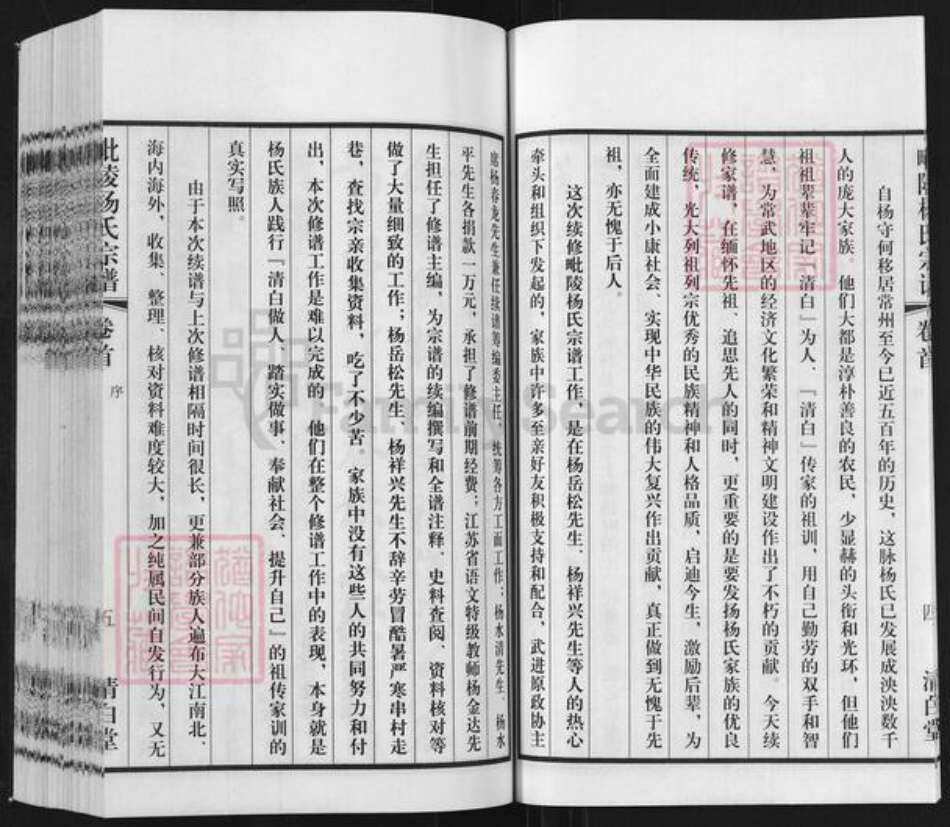 毗陵杨氏宗谱 卷首 四 清白堂
自杨守何移居常州至今已近五百年的历史，这脉杨氏已发展成泱泱数千
人的庞大家族。他们大都是淳朴善良的农民，少显赫的头衔和光环，但他们
祖祖辈辈牢记「清白」为人、「清白」传家的祖训，用自己勤劳的双手和智
慧，为常武地区的经济文化繁荣和精神文明建设作出了不朽的贡献。今天续
修家谱，在缅怀先祖、追思先人的同时，更重要的是要发扬杨氏家族的优良
传统，光大列祖列宗优秀的民族精神和人格品质，启迪今生，激励后辈，为
全面建成小康社会、实现中华民族的伟大复兴作出贡献，真正做到无愧于先
祖，亦无愧于后人。
这次续修毗陵杨氏宗谱工作，是在杨岳松先生、杨祥兴先生等人的热心
牵头和组织下发起的，家族中许多至亲好友积极支持和配合，武进原政协主
席杨春龙先生兼任续谱筹编委主任，统筹各方工面工作；杨水清先生、杨水
平先生各捐款一万元，承担了修谱前期经费；江苏省语文特级教师杨金达先
生担任了修谱主编，为宗谱的续编撰写和全谱注释、史料查阅、资料核对等
做了大量细致的工作；杨岳松先生、杨祥兴先生不辞辛劳冒酷暑严寒串村走
巷，查找宗亲收集资料，吃了不少苦。家族中没有这些人的共同努力和付
出，本次修谱工作是难以完成的。他们在整个修谱工作中的表现，本身就是
杨氏族人践行「清白做人、踏实做事、奉献社会、提升自己」的祖传家训的
真实写照。
由于本次续谱与上次修谱相隔时间很长，更兼部分族人遍布大江南北、
海内海外，收集、整理、核对资料难度较大，加之纯属民间自发行为，又无
毗陵杨氏宗谱 卷首 序 五 清白堂
FamilySearch